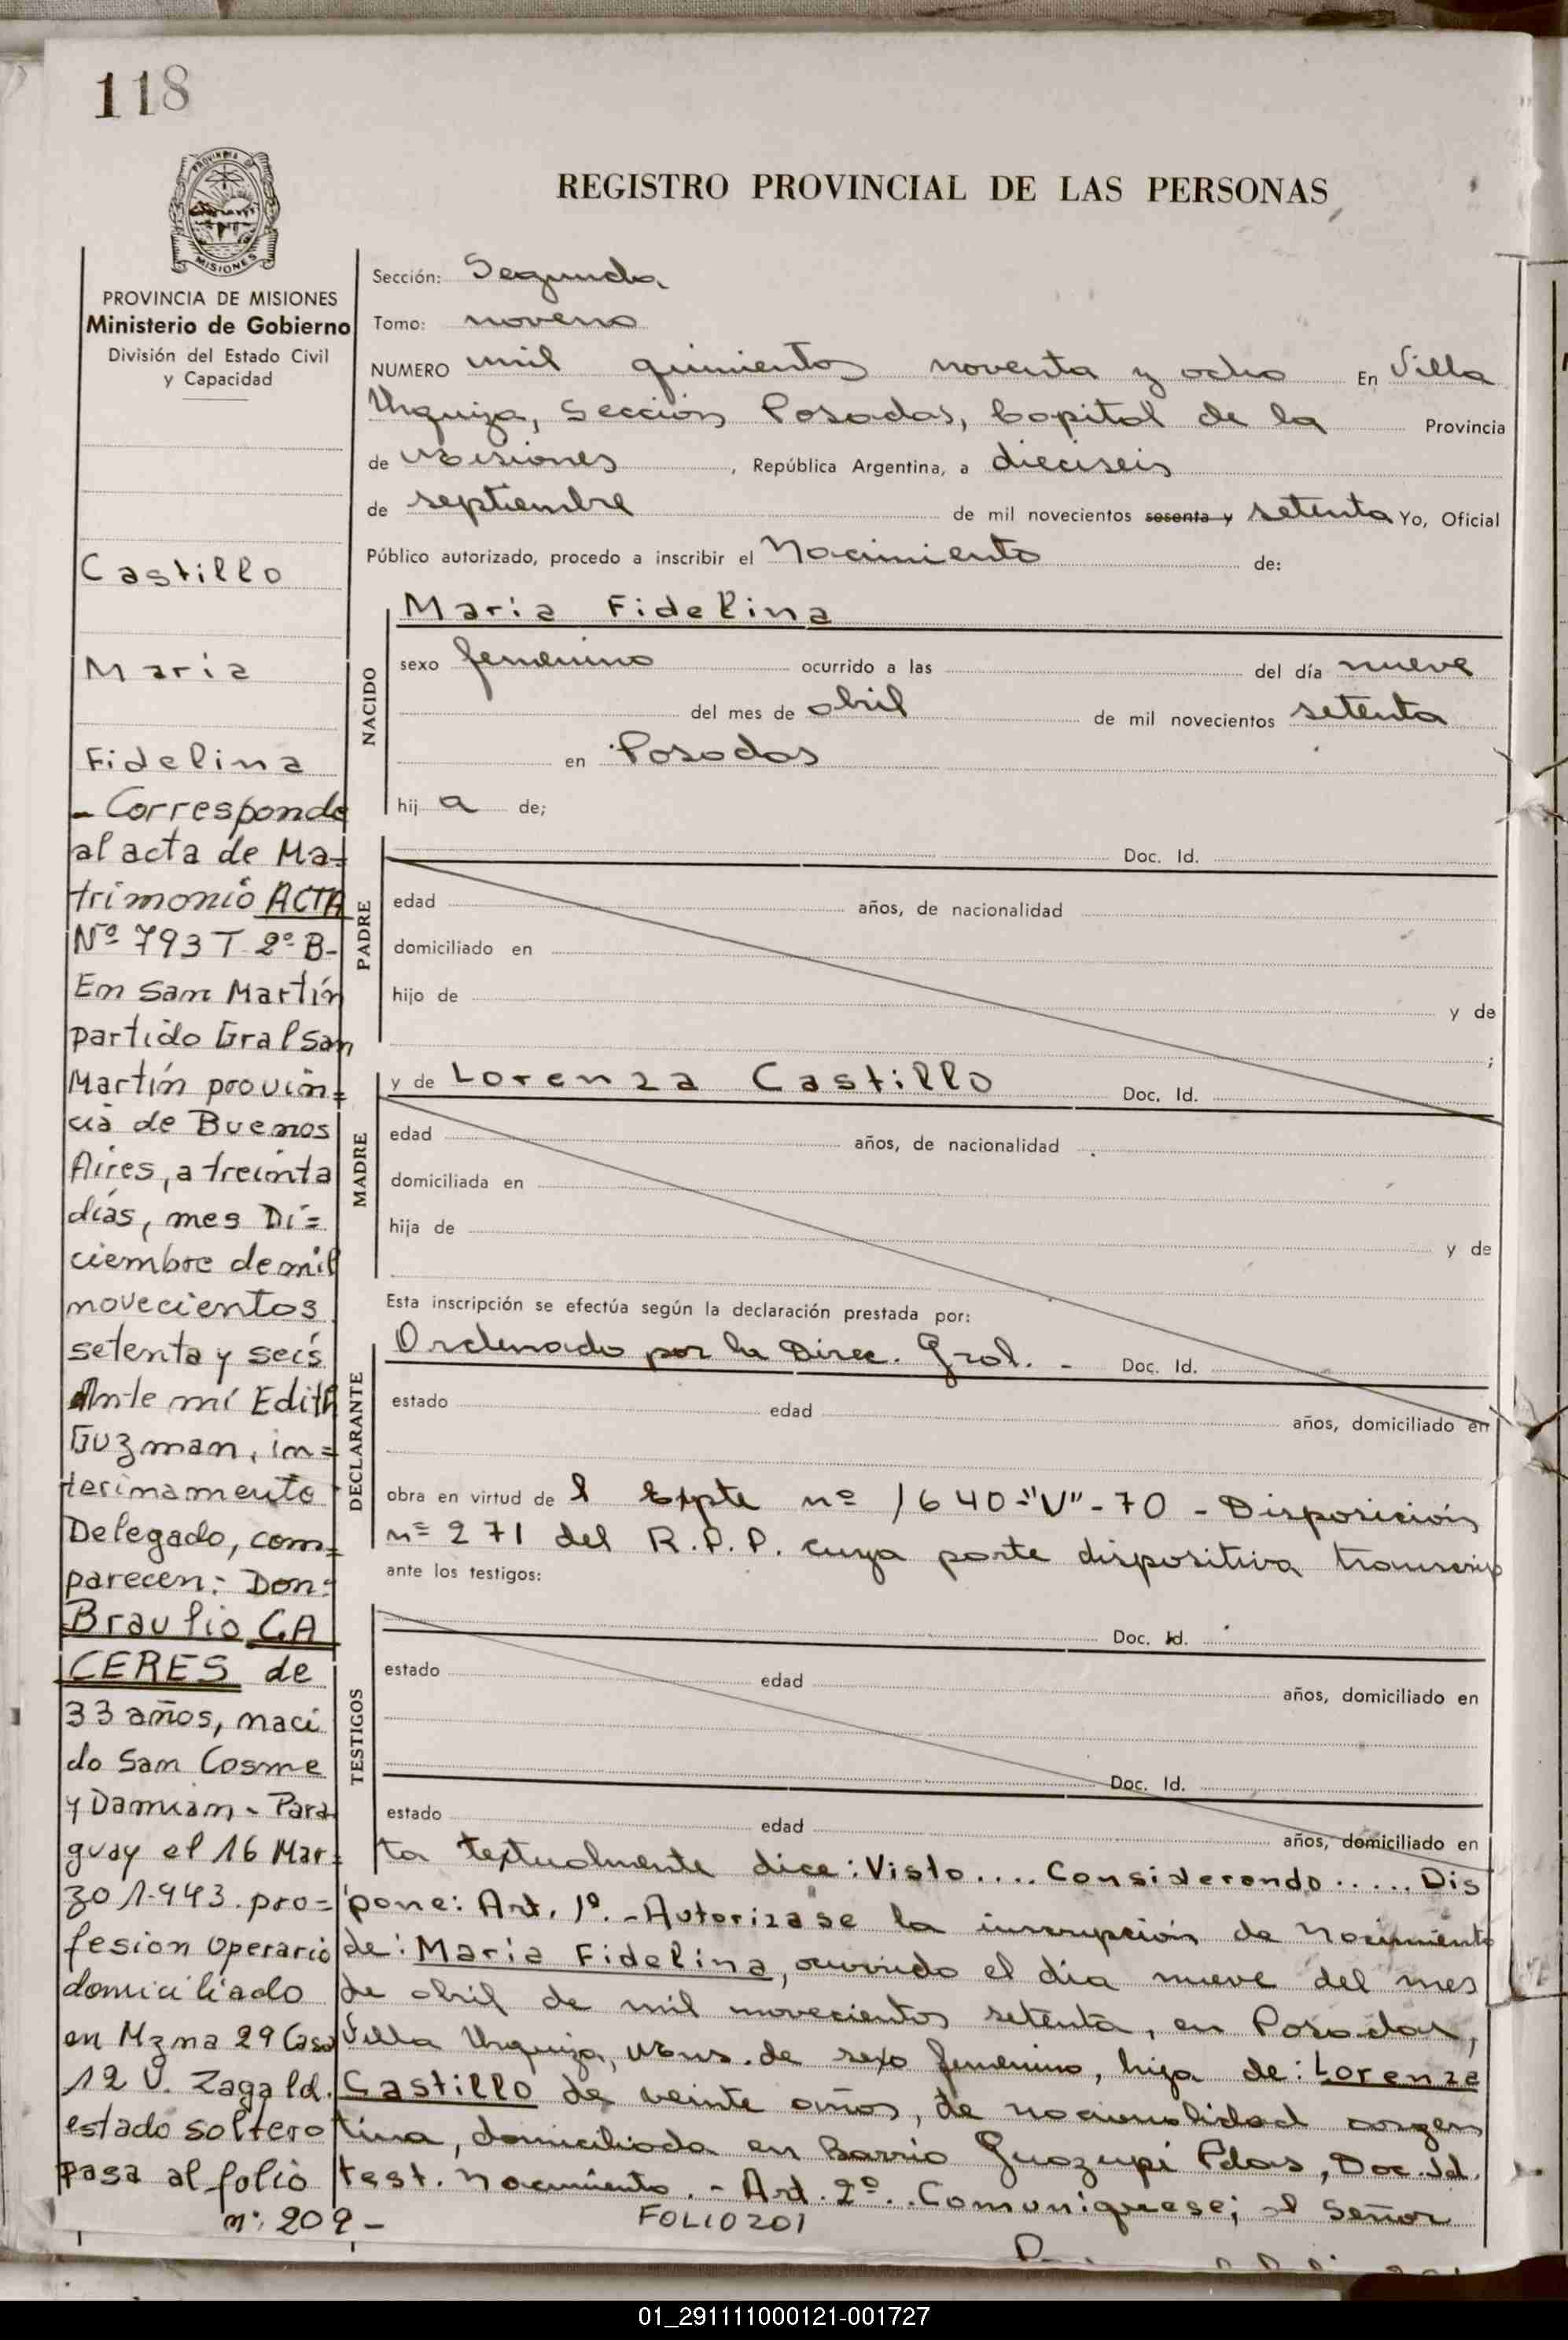 118
PROVINCIA DE
MISIONES
REGISTRO PROVINCIAL DE LAS PERSONAS
PROVINCIA DE MISIONES
Ministerio de Gobierno
División del Estado Civil
y Capacidad
Castillo
Maria
Fidelina
- Corresponde
al acta de Ma=
trimonio ACTA
Nº 793 T 2º B-
En San Martín
partido Gral San
Martín provin=
cia de Buenos
Aires, a treinta
días, mes Di=
ciembre de mil
novecientos
setenta y seis
Ante mí Edith
Guzman, in=
terinamente
Delegado, com=
parecen:- Don:
Braulio CA
CERES de
33 años, naci
do San Cosme
y Damian - Para
guay el 16 Mar=
zo 1.943. pro=
fesion Operario
domiciliado
en Mzna 29 Casa
12 V. Zagald.
estado soltero
Pasa al folio
nº: 209 -
Sección: Segunda
Tomo: noveno
NUMERO mil quinientos noventa y ocho En Villa
Urquiza, Sección Posadas, Capital de la Provincia
de Misiones, República Argentina, a dieciseis
de septiembre de mil novecientos sesenta y setenta Yo, Oficial
Público autorizado, procedo a inscribir el Nacimiento de:
NACIDO
Maria Fidelina
sexo femenino ocurrido a las del día nueve
del mes de abril de mil novecientos setenta
en Posadas
hij a de;
PADRE
Doc. Id.
edad años, de nacionalidad
domiciliado en
hijo de y de
;
MADRE
y de Lorenza Castillo Doc. Id.
edad años, de nacionalidad
domiciliada en
hija de y de
Esta inscripción se efectúa según la declaración prestada por:
DECLARANTE
Ordenado por la Direc. Gral. - Doc. Id.
estado edad años, domiciliado en
obra en virtud de l Expte nº 1640-"V"-70 - Disposición
nº 271 del R.P.P. cuya parte dispositiva transcrip
ante los testigos:
TESTIGOS
Doc. Id.
estado edad años, domiciliado en
Doc. Id.
estado edad años, domiciliado en
ta textualmente dice: Visto.... Considerando..... Dis
pone: Art. 1º. - Autorizase la inscripción de Nacimiento
de: Maria Fidelina, ocurrido el día nueve del mes
de abril de mil novecientos setenta, en Posadas,
Villa Urquiza, Mnes. de sexo femenino, hija de: Lorenza
Castillo de veinte años, de nacionalidad argen
tina, domiciliada en Barrio Guazupi Pdas, Doc. Id.
test. Nacimiento. - Art. 2º. . Comuniquese; el Señor
FOLIO 201
01_291111000121-001727